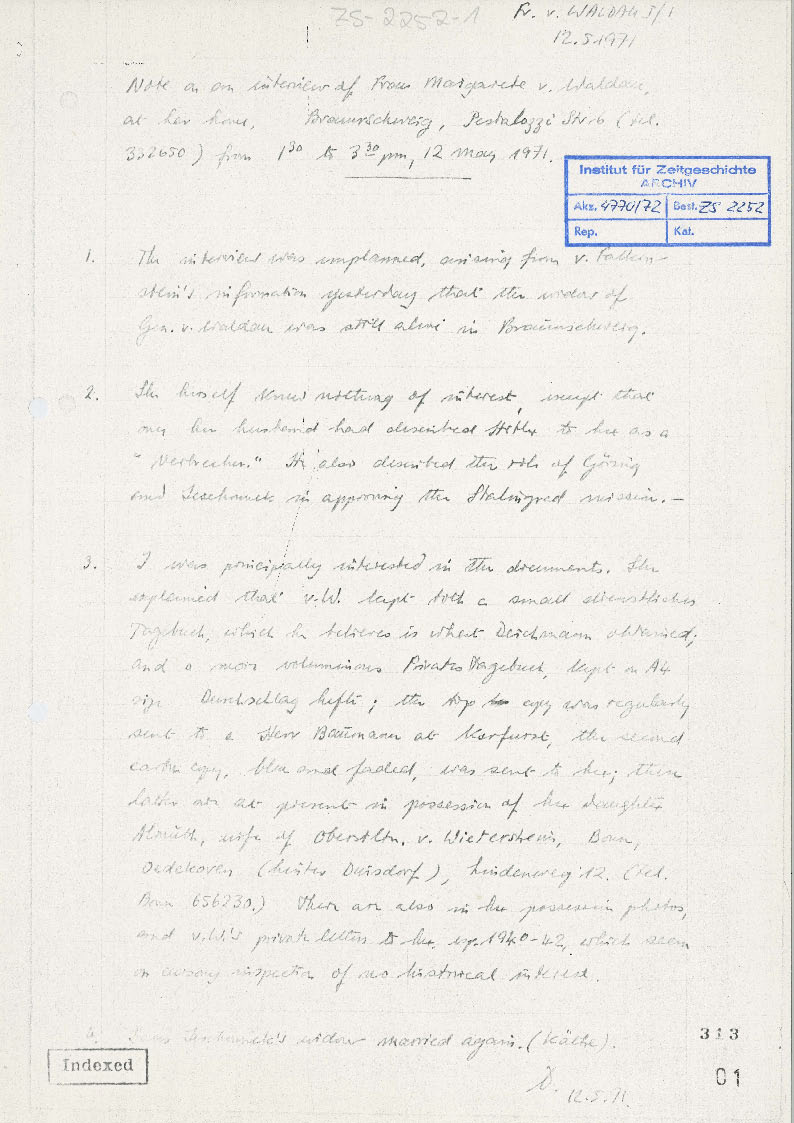 ZS-2252-1
Fr. v. WALDAU I/1
12.5.1971
Note on an interview of Frau Margarete v. Waldau,
at her home, Braunschweig, Pestalozzi Str 6 (tel.
332650) from 1³⁰ to 3³⁰ pm, 12 May 1971.
Institut für Zeitgeschichte
ARCHIV
Akz. 4770/72 Best. ZS 2252
Rep. Kat.
1. The interview was unplanned, arising from v. Falken-
stein's information yesterday that the widow of
Gen. v. Waldau was still alive in Braunschweig.
2. She herself knew nothing of interest, except that
her husband had described Hitler to her as a
"Verbrecher." He also described the role of Göring
and Jeschonnek in approving the Stalingrad mission. —
3. I was principally interested in the documents. She
explained that v.W. kept both a small dienstliches
Tagebuch, which he believes is what Deichmann obtained;
and a more voluminous Privates Tagebuch, kept on A4
size Durchschlag hefte; the top copy was regularly
sent to a Herr Baumann at Karfurst, the second
carbon copy, blue and faded, was sent to her; these
latter are at present in possession of her daughter
Almuth, wife of Oberstltn. v. Wietersheim, Bonn,
Oedekoven (hinter Duisdorf), Lindenweg 12. (tel.
Bonn 656230.) There are also in her possession photos,
and v.W's private letters to her, esp. 1940-42, which seem
on cursory inspection of no historical interest.
4. Jeschonnek's widow married again. (Käthe).
D.
12.5.71.
Indexed
313
01